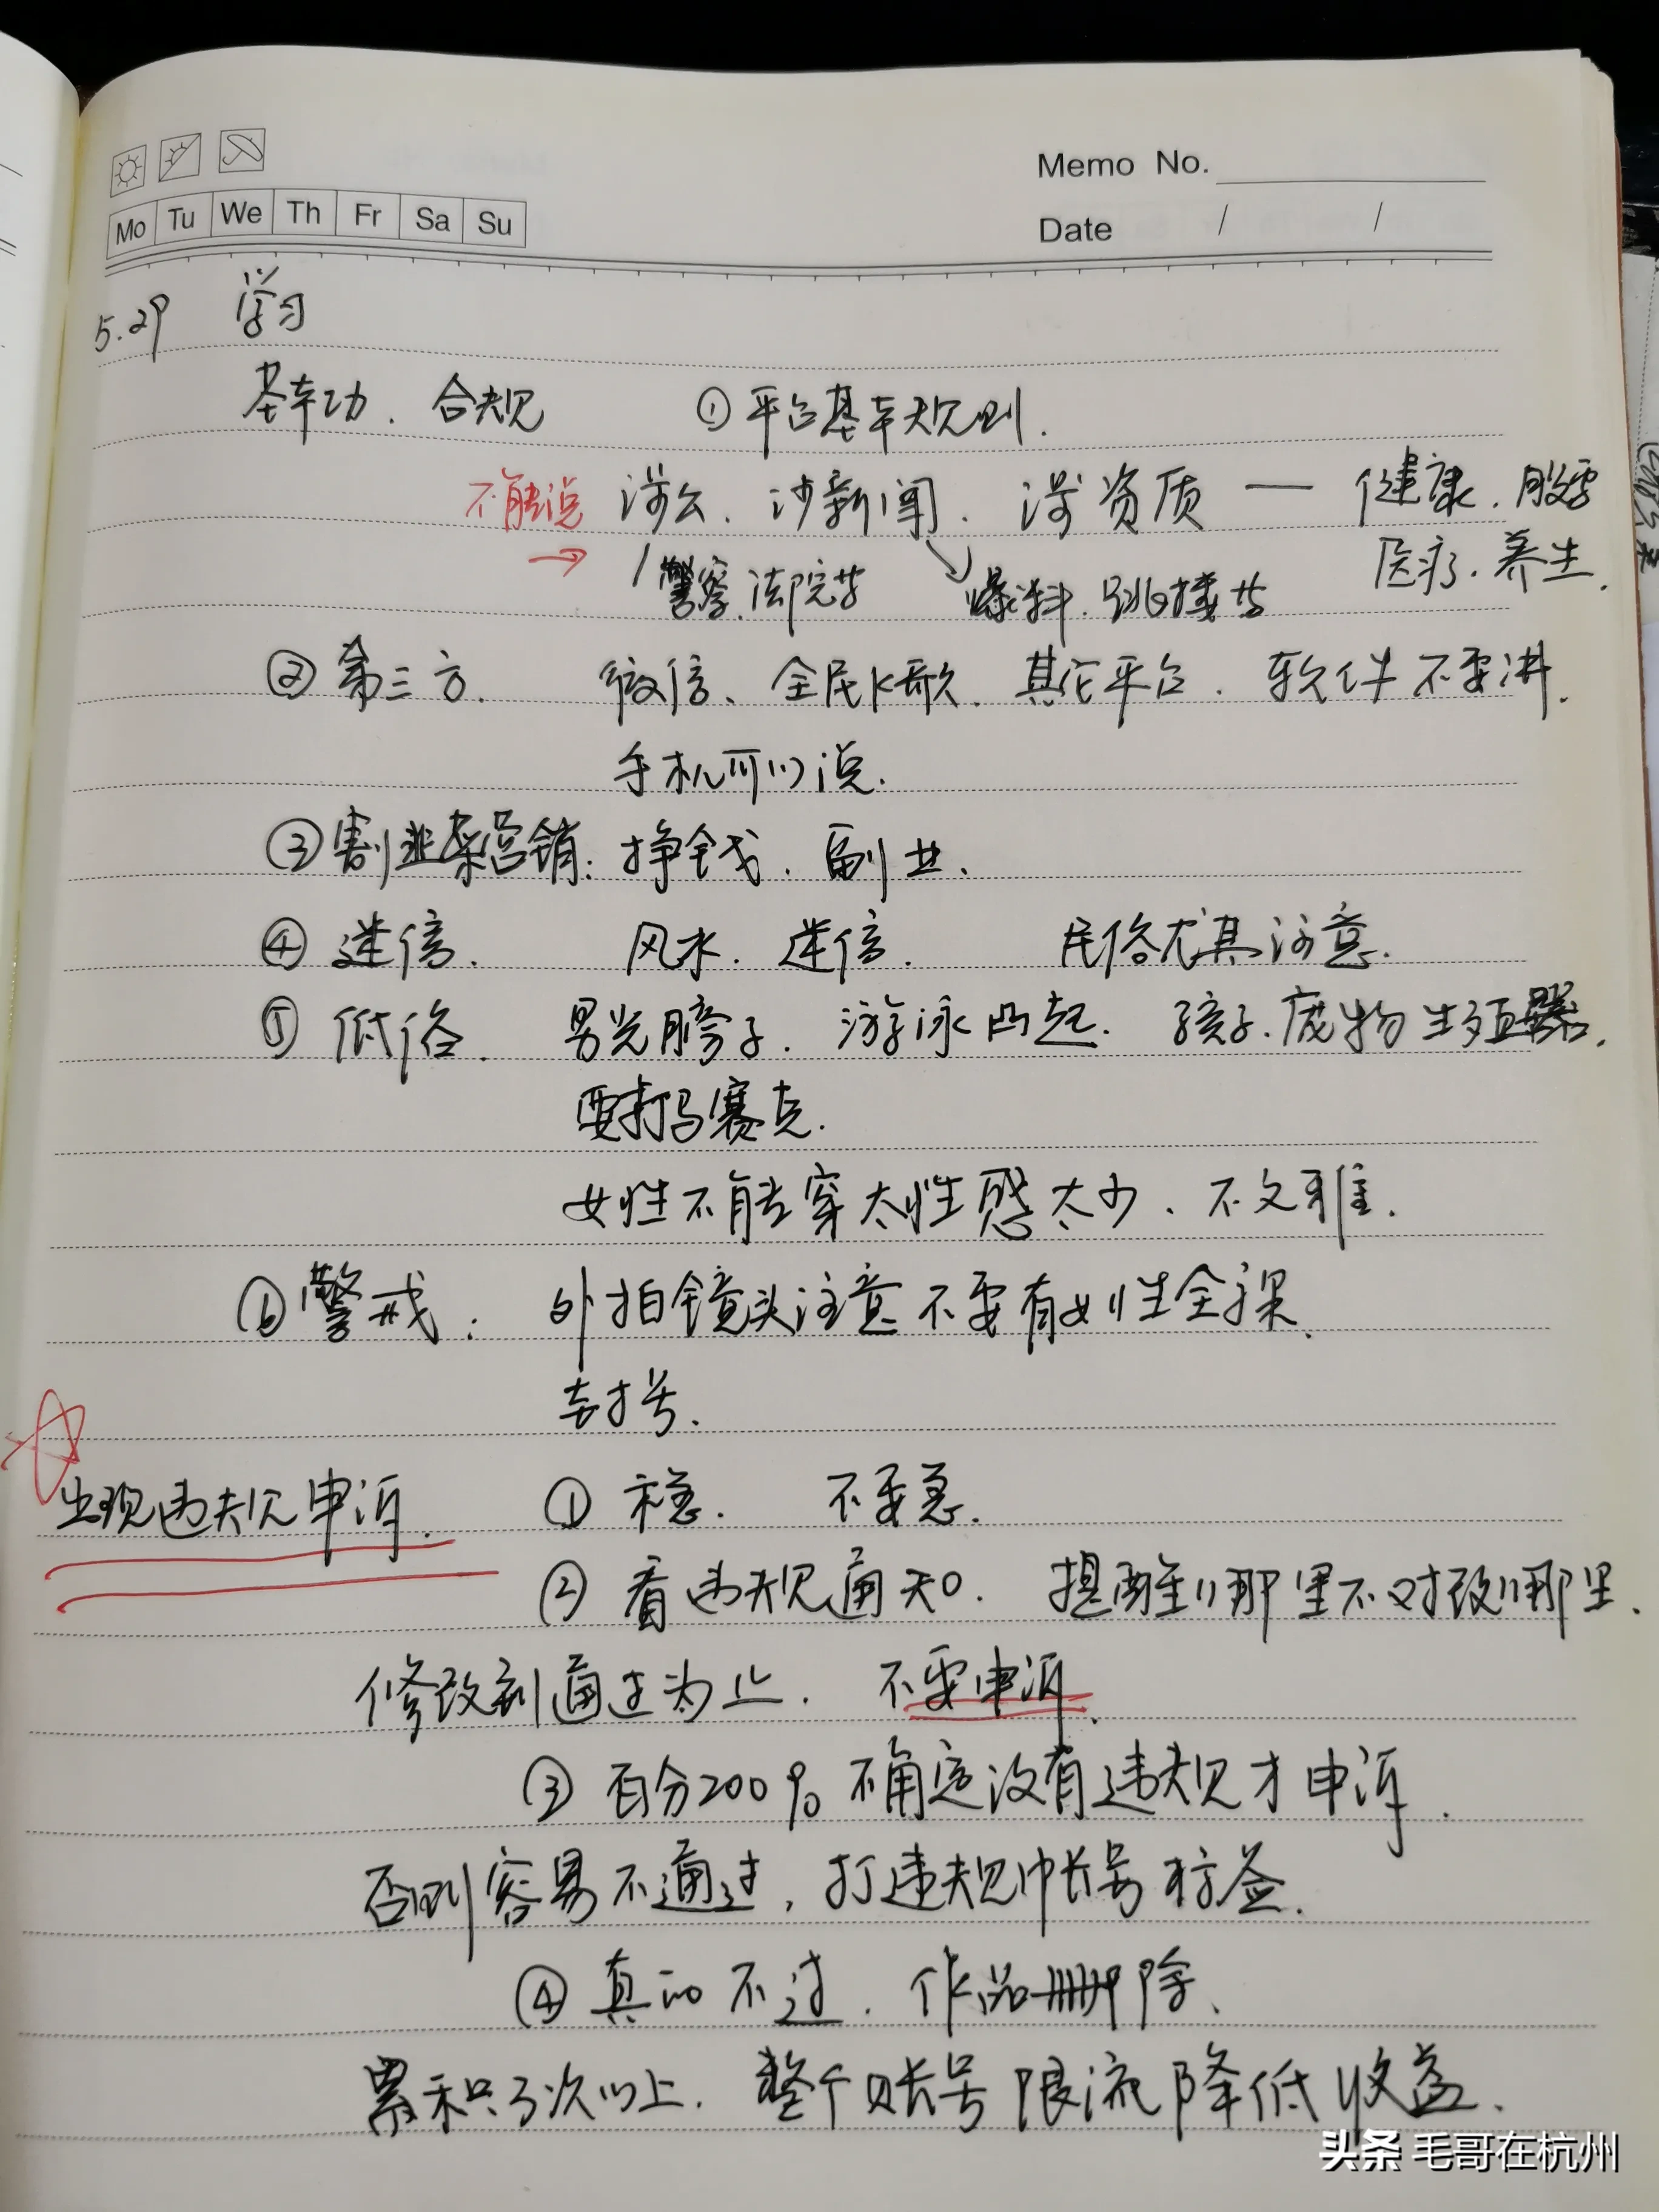 Memo No.
Mo Tu We Th Fr Sa Su
Date / /
5.29 学习
基本功、合规 ①平台基本规则.
不能说 涉公、涉新闻、涉资质 — 健康、股票
→ 警察、法院等 爆料、跳楼等 医疗、养生.
② 第三方. 微信、全民K歌、其它平台、软件不要讲.
手机可以说.
③割韭菜营销: 挣钱、副业.
④ 迷信. 风水、迷信. 民俗尤其注意.
⑤ 低俗. 男光膀子、游泳凸起. 孩子、宠物生殖器.
要打马赛克.
女性不能穿太性感太少、不文雅.
⑥警戒: 外拍镜头注意不要有女性全裸.
封号.
出现违规申诉. ① 稳. 不要急.
② 看违规通知. 提醒哪里不对改哪里.
修改到通过为止. 不要申诉.
③ 百分200% 确定没有违规才申诉.
否则容易不通过, 打违规帐号标签.
④ 真的不过. 作品删除.
累积3次以上. 整个账号限流降低收益.
头条 毛哥在杭州